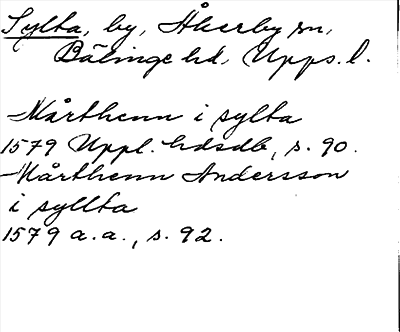 Sylta, by, Åkerby sn,
Bälinge hd, Upps. l.
Mårthenn i sylta
1579 Uppl. hdsdb, s. 90.
Mårthenn Andersson
i syllta
1579 a.a., s. 92.